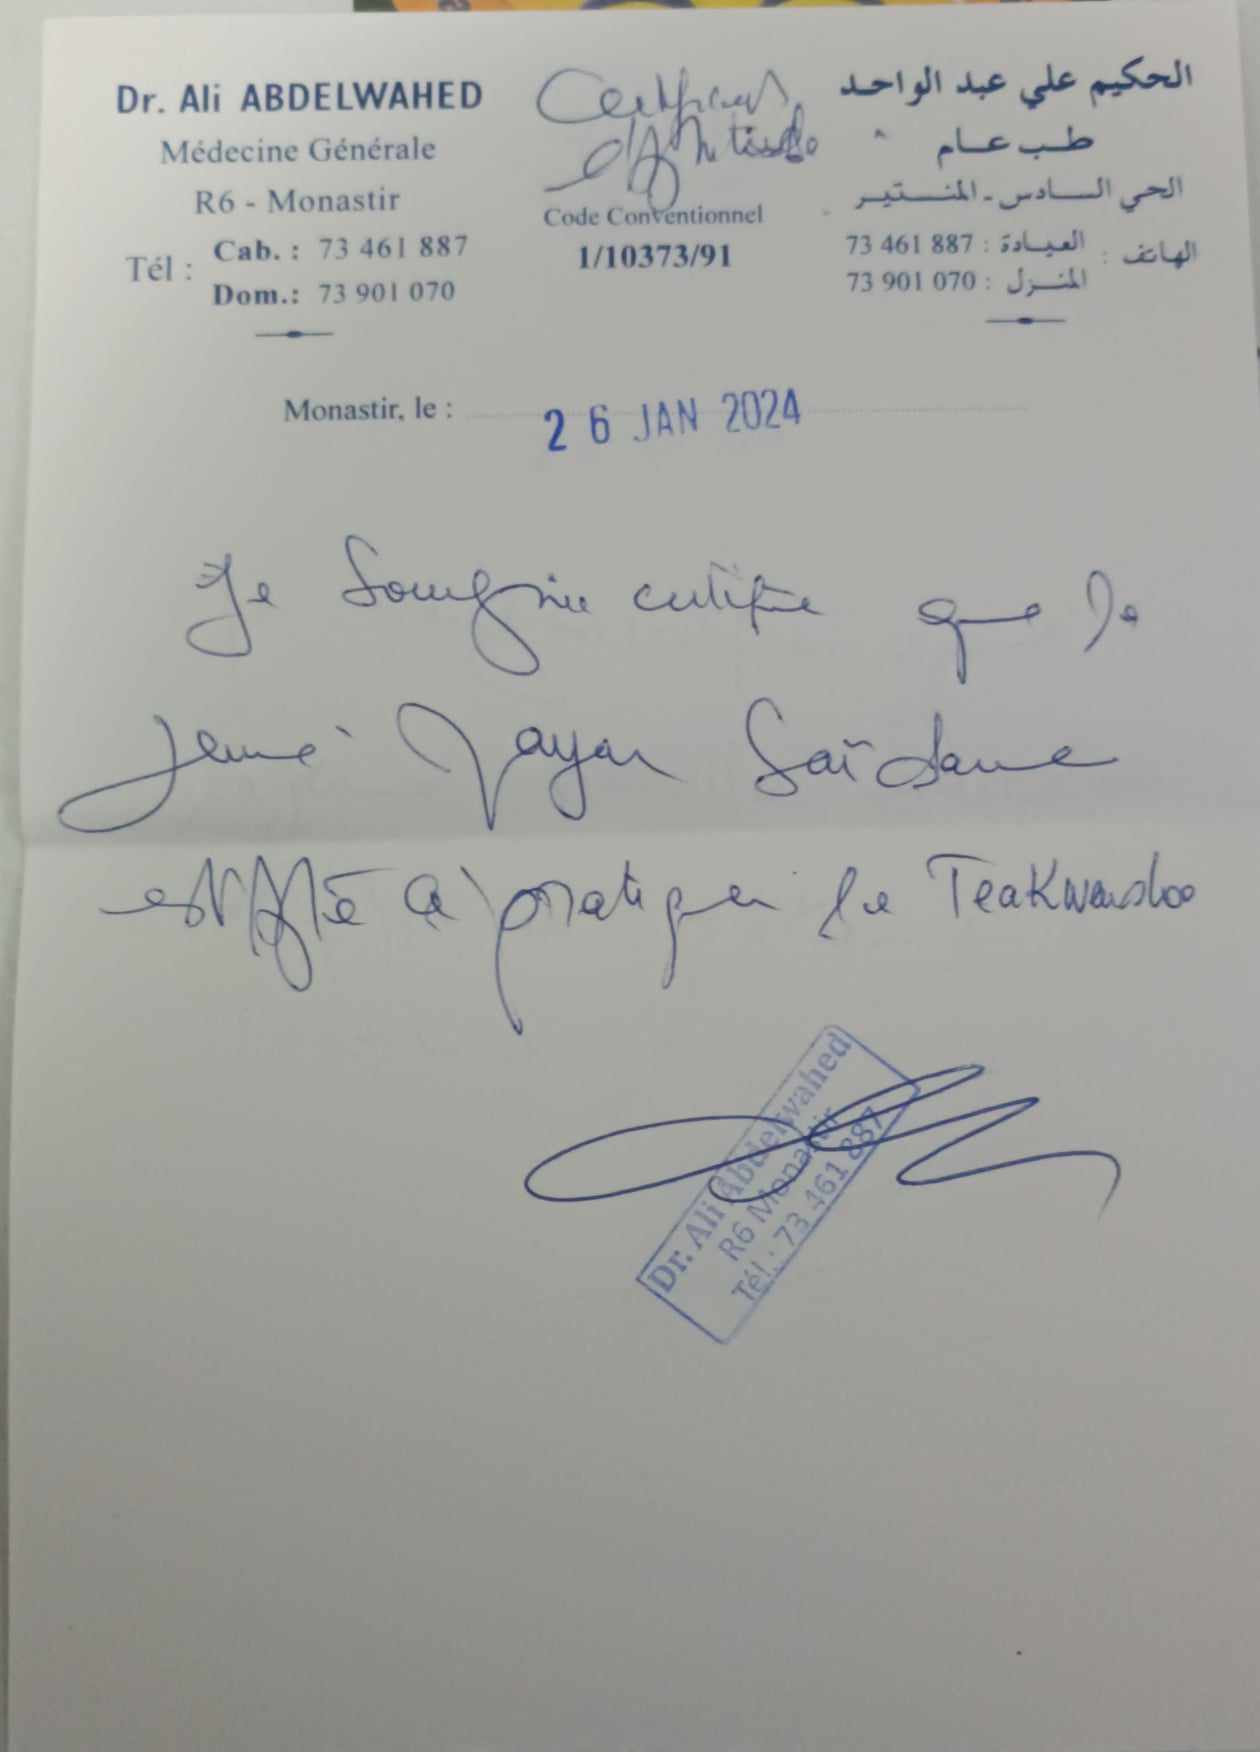 Dr. Ali ABDELWAHED
Médecine Générale
R6 - Monastir
Tél :
Cab. : 73 461 887
Dom.: 73 901 070
Certificat
d'Aptitude
Code Conventionnel
1/10373/91
الحكيم علي عبد الواحد
طب عام
الحي السادس - المنستير
الهاتف :
العيادة : 887 461 73
المنزل : 070 901 73
Monastir, le : 26 JAN 2024
Je soussigné certifie que le
jeune Rayan Saïdane
est Apte à pratiquer le Teakwendoo
Dr. Ali Abdelwahed
R6 Monastir
Tél : 73 461 887